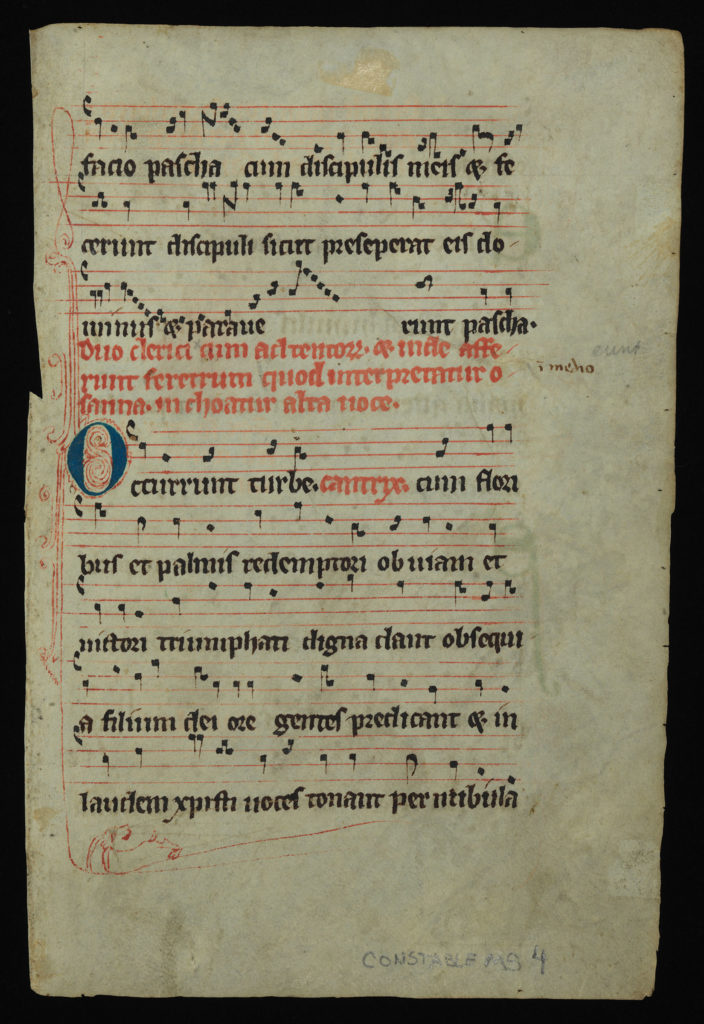 facio pascha cum discipulis meis & fe
cerunt discipuli sicut preseperat eis do
minus & paraue runt pascha.
Duo clerici cum ad tentor. & inde affe
runt feretrum quod interpretatur o
sanna. inchoatur alta uoce.
Occurrunt turbe. cantrix. cum flori
bus et palmis redemptori obuiam et
uictori triumphati digna dant obsequi
a filium dei ore gentes predicant & in
laudem xpisti uoces tonant per nubila
eunt
CONSTABLE MS 4